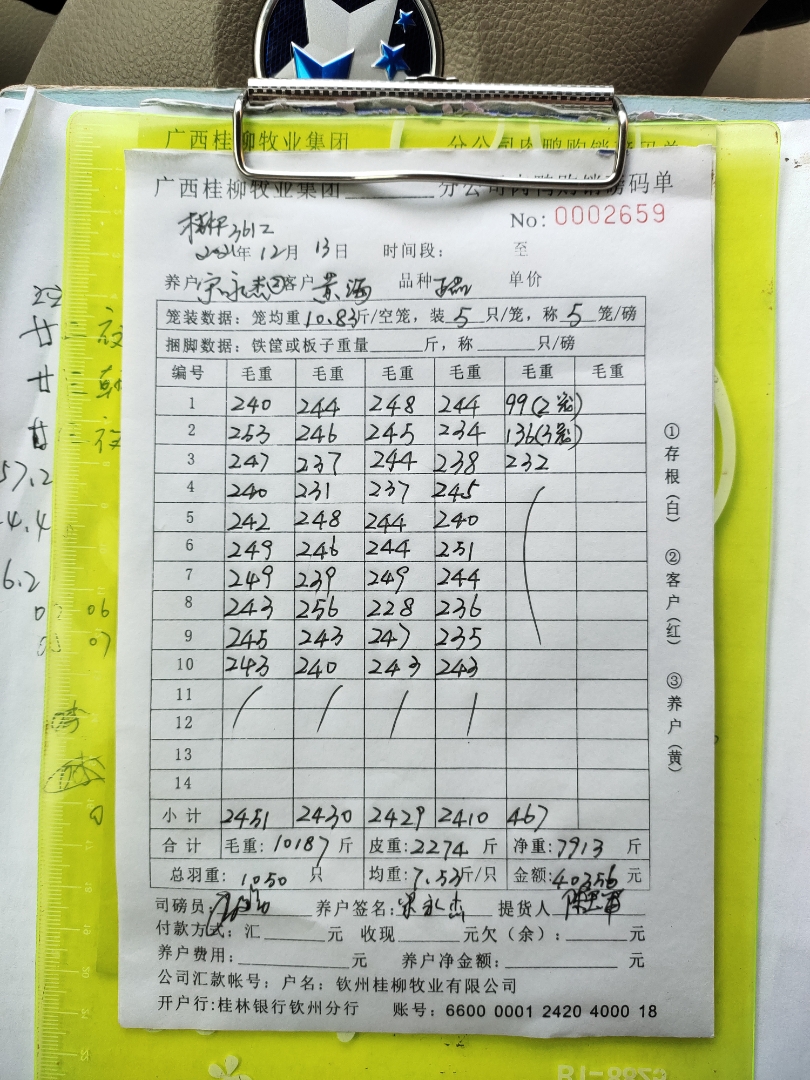 广西桂柳牧业集团 分公司肉鸭购销磅码单
广西桂柳牧业集团______分公司肉鸭购销磅码单
No: 0002659
3612
2021年12月13日 时间段: 至
养户 客户 黄海 品种 单价
笼装数据: 笼均重10.83斤/空笼, 装5只/笼, 称5笼/磅
捆脚数据: 铁筐或板子重量______斤, 称______只/磅
编号 毛重 毛重 毛重 毛重 毛重 毛重
1 240 244 248 244 99(2笼)
2 253 246 245 234 136(3笼)
3 247 237 244 238 232
4 240 231 237 245
5 242 248 244 240
6 249 246 244 251
7 249 239 249 244
8 243 256 228 236
9 245 243 247 235
10 243 240 243 243
11
12
13
14
小计 2451 2430 2429 2410 467
合计 毛重: 10187斤 皮重: 2274斤 净重: 7913斤
总羽重: 1050只 均重: 7.53斤/只 金额: 40356元
司磅员: 养户签名: 宋永杰 提货人
付款方式: 汇______元 收现______元欠(余): ______元
养户费用: ______元 养户净金额: ______元
公司汇款帐号: 户名: 钦州桂柳牧业有限公司
开户行: 桂林银行钦州分行 账号: 6600 0001 2420 4000 18
①存根(白) ②客户(红) ③养户(黄)
57.2
4.4
6.2
06
07